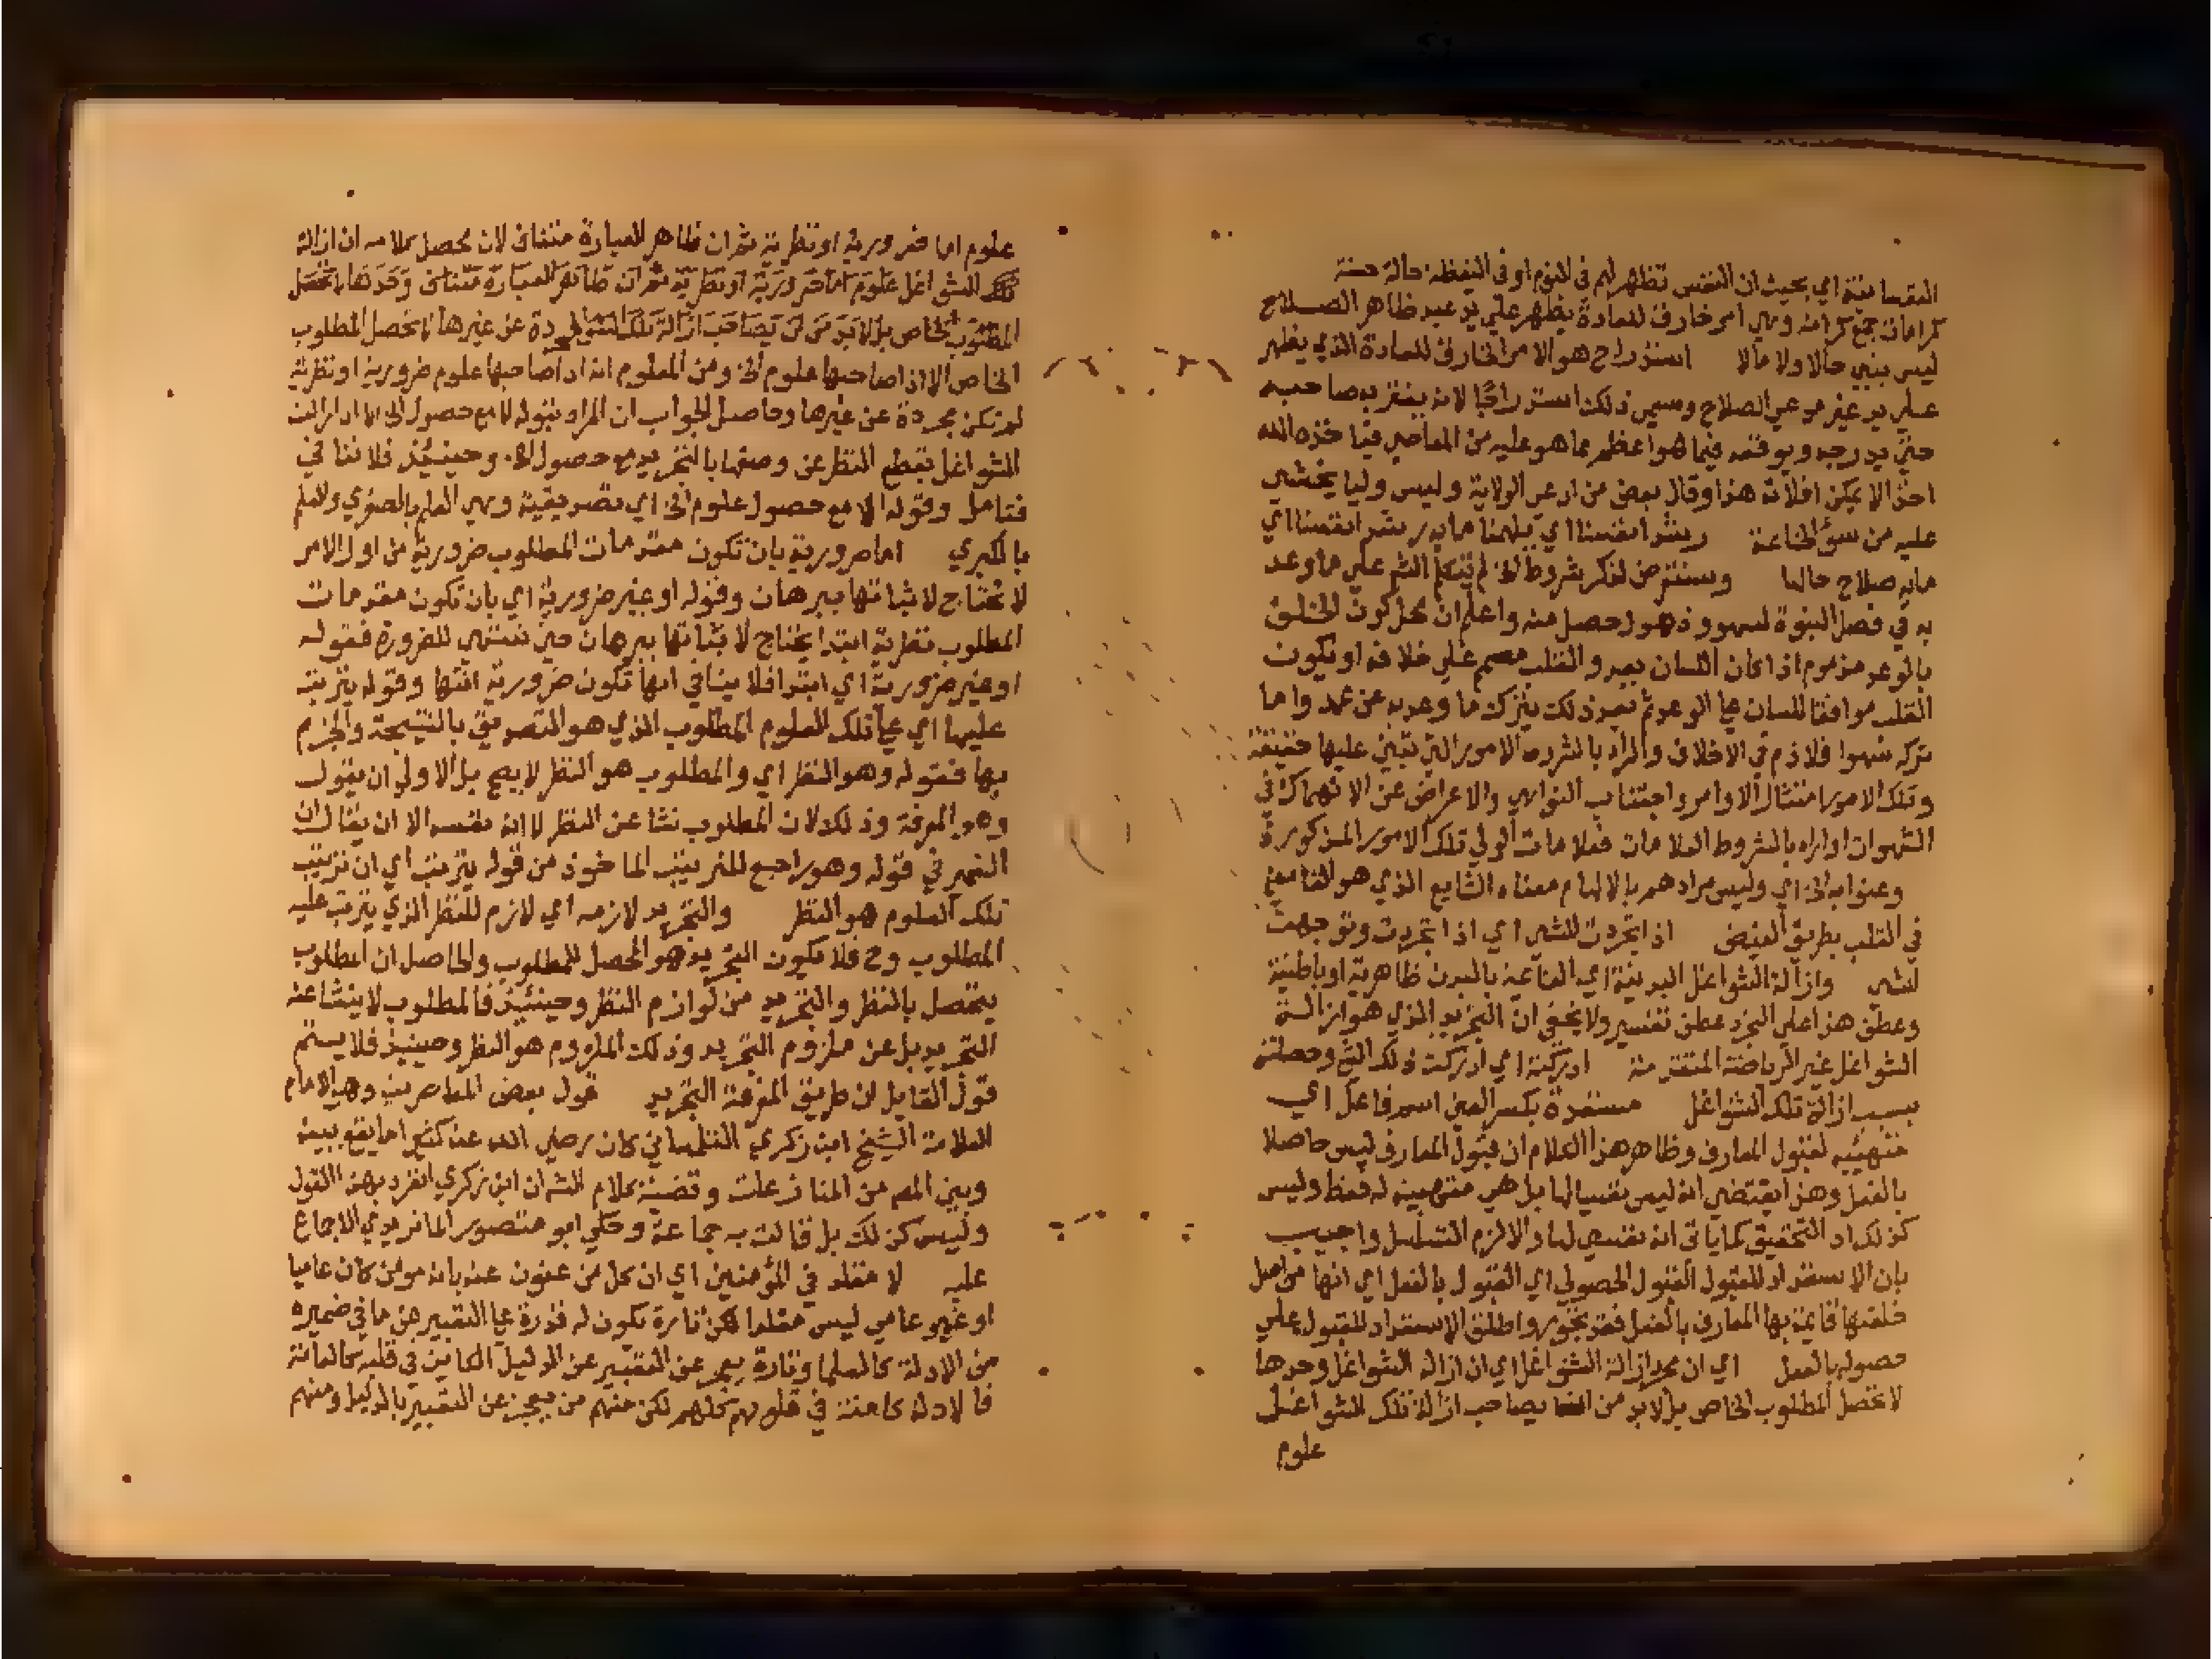 النفسانية اي بحيث ان النفس تظهر لهم في النوم او في اليقظة حالة حسنة
كرامات جمع كرامة وهي امر خارق للعادة يظهر علي يد عبد ظاهر الصلاح
ليس بنبي حالا ولا مالا استدراج هو الامر الخارق للعادة الذي يظهر
علي يد غير مدعي الصلاح وسمي ذلك استدراجا لانه يغتر به صاحبه
حتي يدرجه ويوقعه فيما هو اعظم مما هو عليه من المعاصي فياخذه الله
اخذا لا يمكن افلاته هذا وقال بعض من ادعي الولاية وليس وليا يخشي
عليه من سؤ الخاتمة رشد انفسنا اي يلهمنا ما به رشد انفسنا اي
ما به صلاح حالها وسنتعرض لذكر شروط الخ لم الشم علي ما وعد
به في فصل النبوة لسهو وذهول حصل منه واعلم ان محل كون الخلف
بالوعد مذموم اذا كان اللسان يعد والقلب مصمم علي خلافه او يكون
القلب موافقا للسان علي الوعد ثم بعد ذلك يترك ما وعد به عن عمد واما
تركه سهوا فلا ذم في الاخلاف والمراد بالشروط الامور التي تبتني عليها حقيقة
وتلك الامور امتثال الاوامر واجتناب النواهي والاعراض عن الانهماك في
الشهوات او اراد بالشروط العلامات فعلامات الولي تلك الامور المذكورة
وعنوا به الخ اي وليس مرادهم بالالهام معناه الشايع الذي هو القا معني
في القلب بطريق الفيض اذا تجردت للشي اي اذا تجردت وتوجهت
للشي وازالة الشواغل البدنية اي القائمة بالبدن ظاهرية او باطنية
وعطف هذا علي التجرد عطف تفسير ولا يخفي ان التجريد الذي هو ازالة
الشواغل غير الرياضة المتقدمة ادركته اي ادركت ذلك الشي وحصلته
بسبب ازالة تلك الشواغل مستعدة بكسر العين اسم فاعل اي
متهيئية لقبول المعارف وظاهر هذا الكلام ان قبول المعارف ليس حاصلا
بالفعل وهذا يقتضي انه ليس نفسيا لها بل هي متهيية له فقط وليس
كذلك اذ التحقيق كما ياتي انه نفسي لها والا لزم التسلسل واجيب
بان الاستعداد للقبول القبول الحصولي اي القبول بالفعل اي انها من اصل
خلقتها قايمة بها المعارف بالفعل فقد تجوز واطلق الاستعداد للقبول علي
حصوله بالفعل اي ان مجرد ازالة الشواغل اي ان ازالة الشواغل وحدها
لا تحصل المطلوب الخاص بل لا بد من يصاحب ازالة تلك الشواغل
علوم
علوم اما ضرورية او نظرية ثم ان ظاهر العبارة متنافي لان محصل كلامه ان ازالة
تلك الشواغل علوم اما ضرورية او نظرية ثم ان ظاهر العبارة متنافي وحدها لا تحصل
المطلوب الخاص بل لا بد من ان يصاحب ازالة تلك عن غيرها لا تحصل المطلوب
الخاص الا اذا صاحبها علوم الخ ومن المعلوم انه اذا صاحبها علوم ضرورية او نظرية
لم تكن مجردة عن غيرها وحاصل الجواب ان المراد بقوله لا مع حصول الخ
الشواغل بقطع النظر عن وصفها بالتجريد مع حصول الخ وحينئذ فلا تنافي
فتامل وقوله الا مع حصول علوم الخ اي تصديقية وهي العلم بالصغري والعلم
بالكبري اما ضرورية بان تكون مقدمات المطلوب ضرورية من اول الامر
لا تحتاج لاثباتها ببرهان وقوله او غير ضرورية اي بان تكون مقدمات
المطلوب نظرية ابتدا يحتاج لاثباتها ببرهان حتي تنتهي للضرورة فقوله
او غير ضرورية اي ابتدا فلا ينافي انها تكون ضرورية انتها وقوله يترتب
عليها اي علي تلك العلوم المطلوب الذي هو التصديق بالنتيجة والجزم
بها فقوله وهو النظر اي والمطلوب هو النظر لا يصح بل الاولي ان يقول
وهو المعرفة وذلك لان المطلوب نشا عن النظر لا انه نفسه الا ان يقال ان
الضمير في قوله وهو راجع للترتيب الماخوذ من قوله يترتب اي ان ترتيب
تلك العلوم هو النظر والتجريد لازمه اي لازم للنظر الذي يترتب عليه
المطلوب وح فلا يكون التجريد هو المحصل للمطلوب والحاصل ان المطلوب
يتحصل بالنظر والتجريد من لوازم النظر وحينئذ فالمطلوب لا ينشا عنه
التجريد بل عن ملزوم التجريد وذلك الملزوم هو النظر وحينئذ فلا يستم
قول القايل ان طريق المعرفة التجريد قول بعض المعاصرين وهو الامام
العلامة الشيخ ابن زكري التلمساني كان رضي الله عنه كثيرا ما يقع بينه
وبين المص من المنازعات وقضية كلام الشم ان ابن زكري انفرد بهذا القول
وليس كذلك بل قالت به جماعة وحكي ابو منصور الماتريدي الاجماع
عليه لا مقلد في المؤمنين اي ان كل من عنون عنه بانه مومن كان عاميا
او غير عامي ليس مقلدا لكن تارة تكون له قدرة علي التعبير عن ما في ضميره
من الادلة كالعلما وتارة يعجز عن التعبير عن الدليل الكاين في قلبه كالعامة
فالادلة كامنة في قلوبهم كلهم لكن منهم من يعجز عن التعبير بالدليل ومنهم